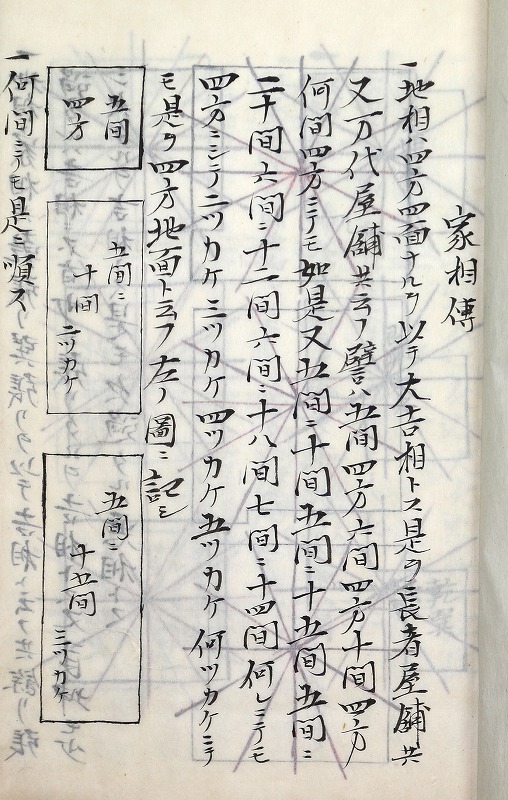 家相傳
一地相ハ四方四面ナルヲ以テ大吉相トス是ヲ長者屋舗共
又万代屋舗共云フ譬ハ五間四方六間四方十間四方
何間四方ニテモ如是又五間ニ十間五間ニ十五間五間ニ
二十間六間ニ十二間六間ニ十八間七間ニ十四間何レニテモ
四方ニシテ二ツカケ三ツカケ四ツカケ五ツカケ何ツカケニテ
モ是ヲ四方地面ト云フ左ノ圖ニ記ス
五間
四方
五間ニ
十間
二ツカケ
五間ニ
十五間
三ツカケ
一何間ニテモ是ニ順ス